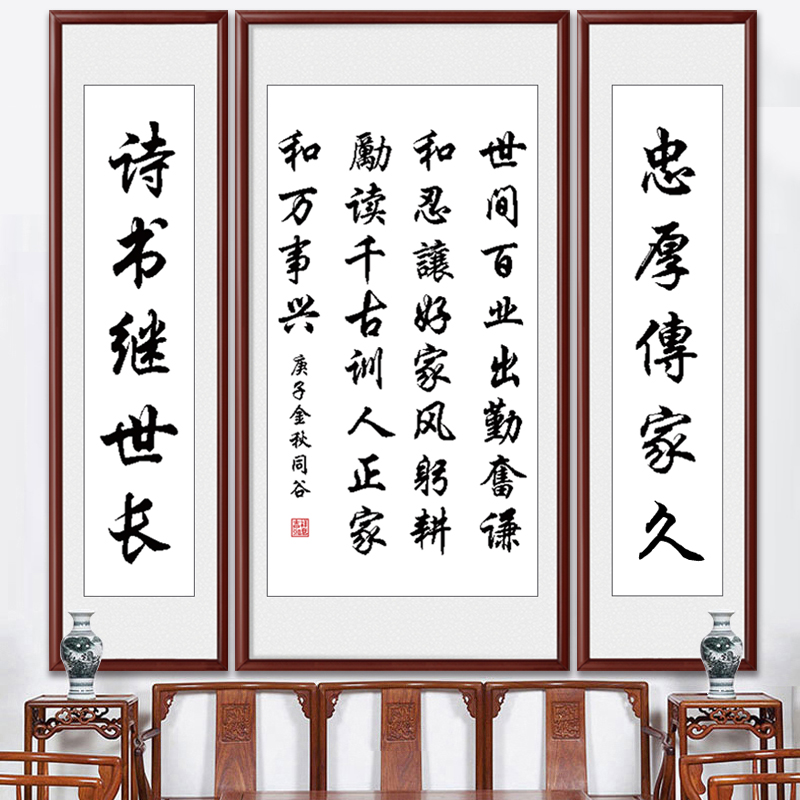 忠厚傳家久
世间百业出勤奋谦
和忍讓好家风躬耕
勵读千古训人正家
和万事兴
庚子金秋同谷
诗书继世长